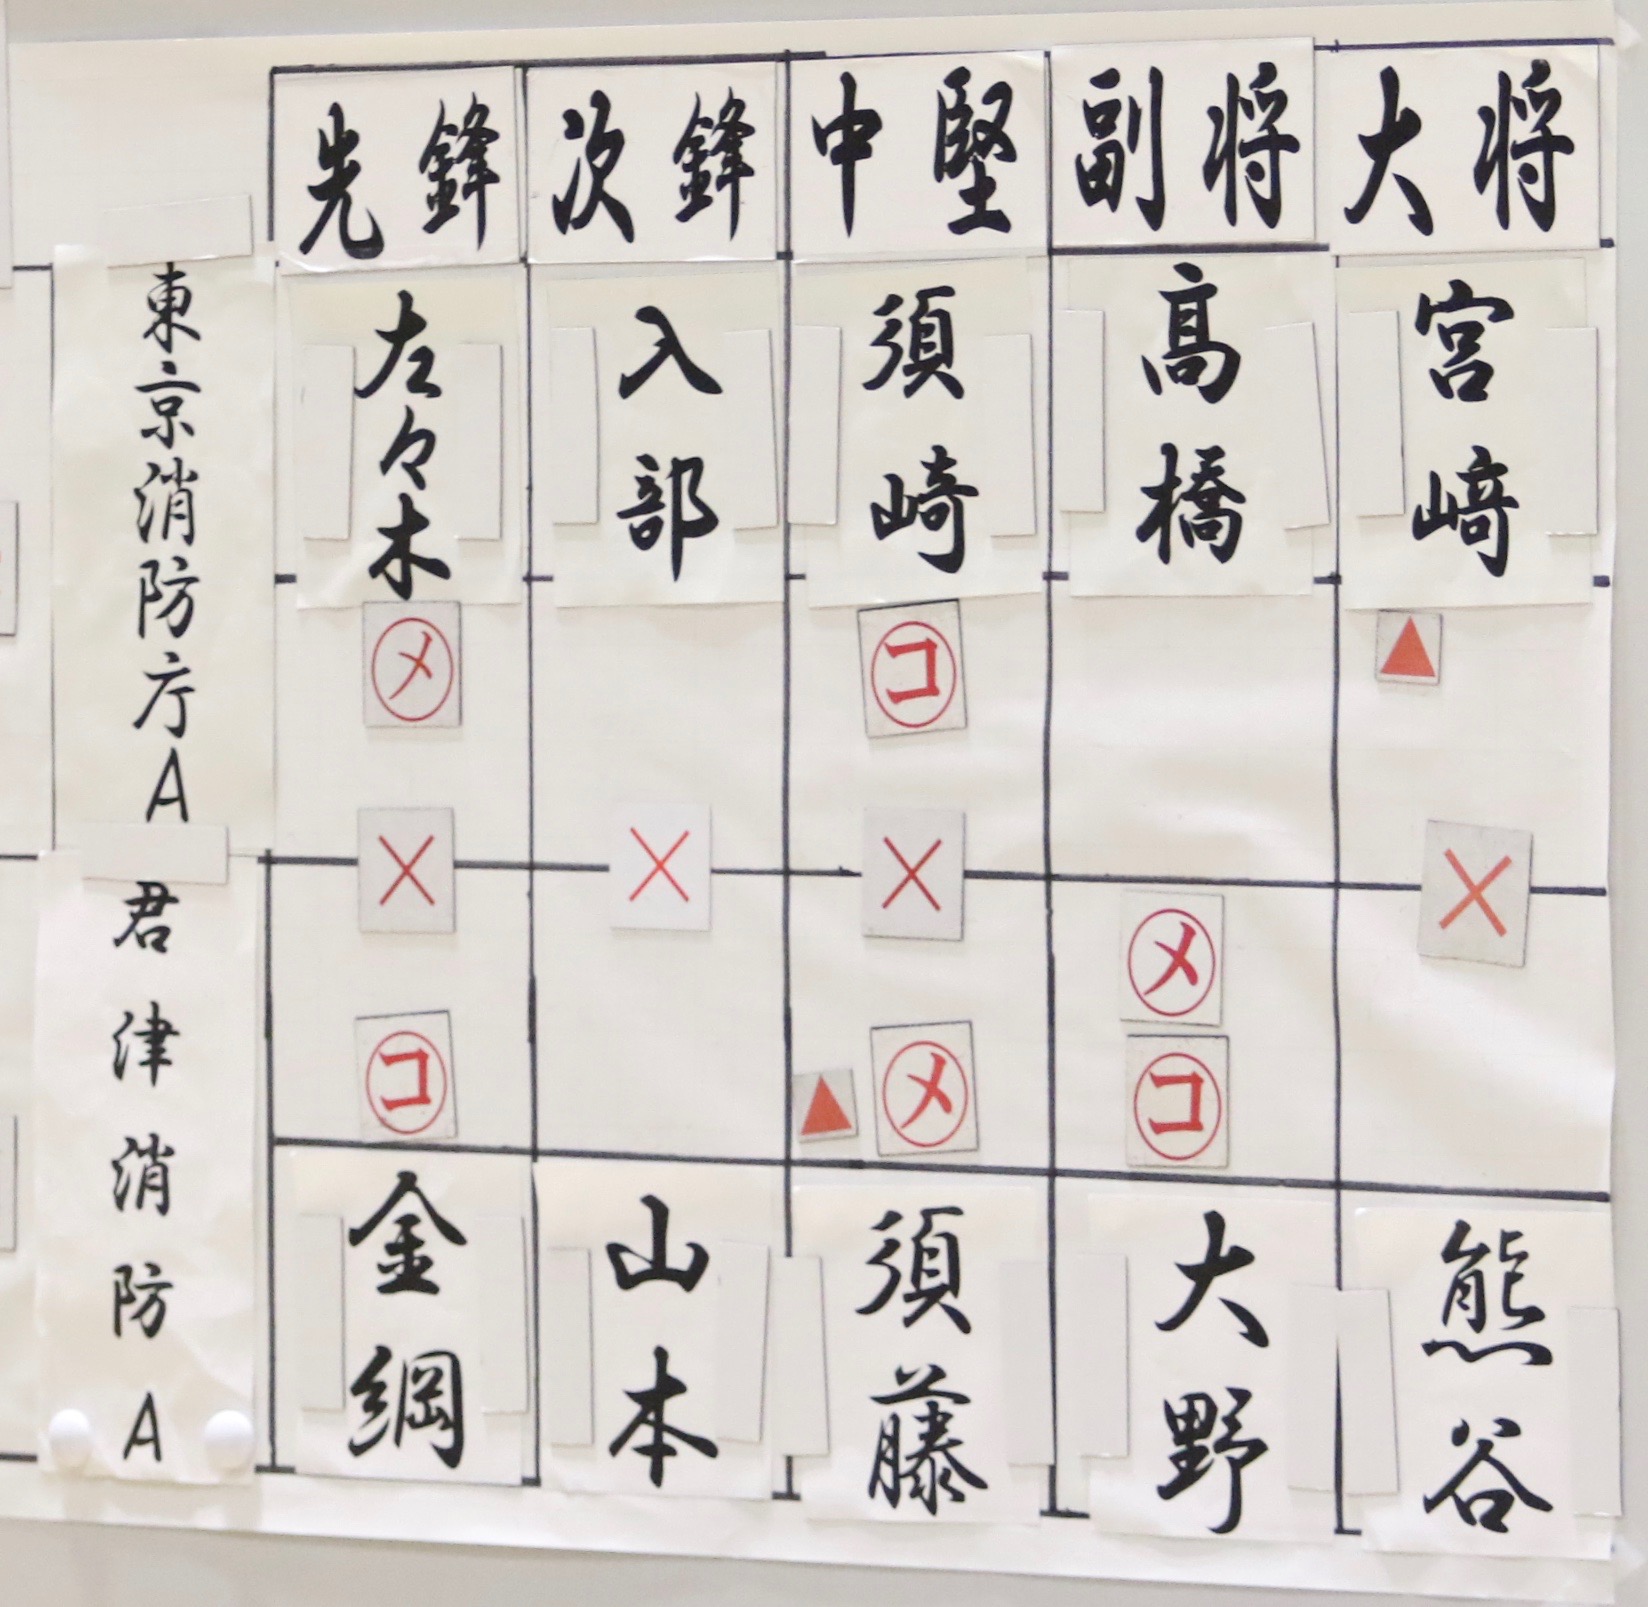 先鋒 次鋒 中堅 副将 大将
東京消防庁A
左々木 入部 須崎 髙橋 宮﨑
メ コ ▲
× × × ×
メ
コ ▲ メ コ
君津消防A
金綱 山本 須藤 大野 熊谷